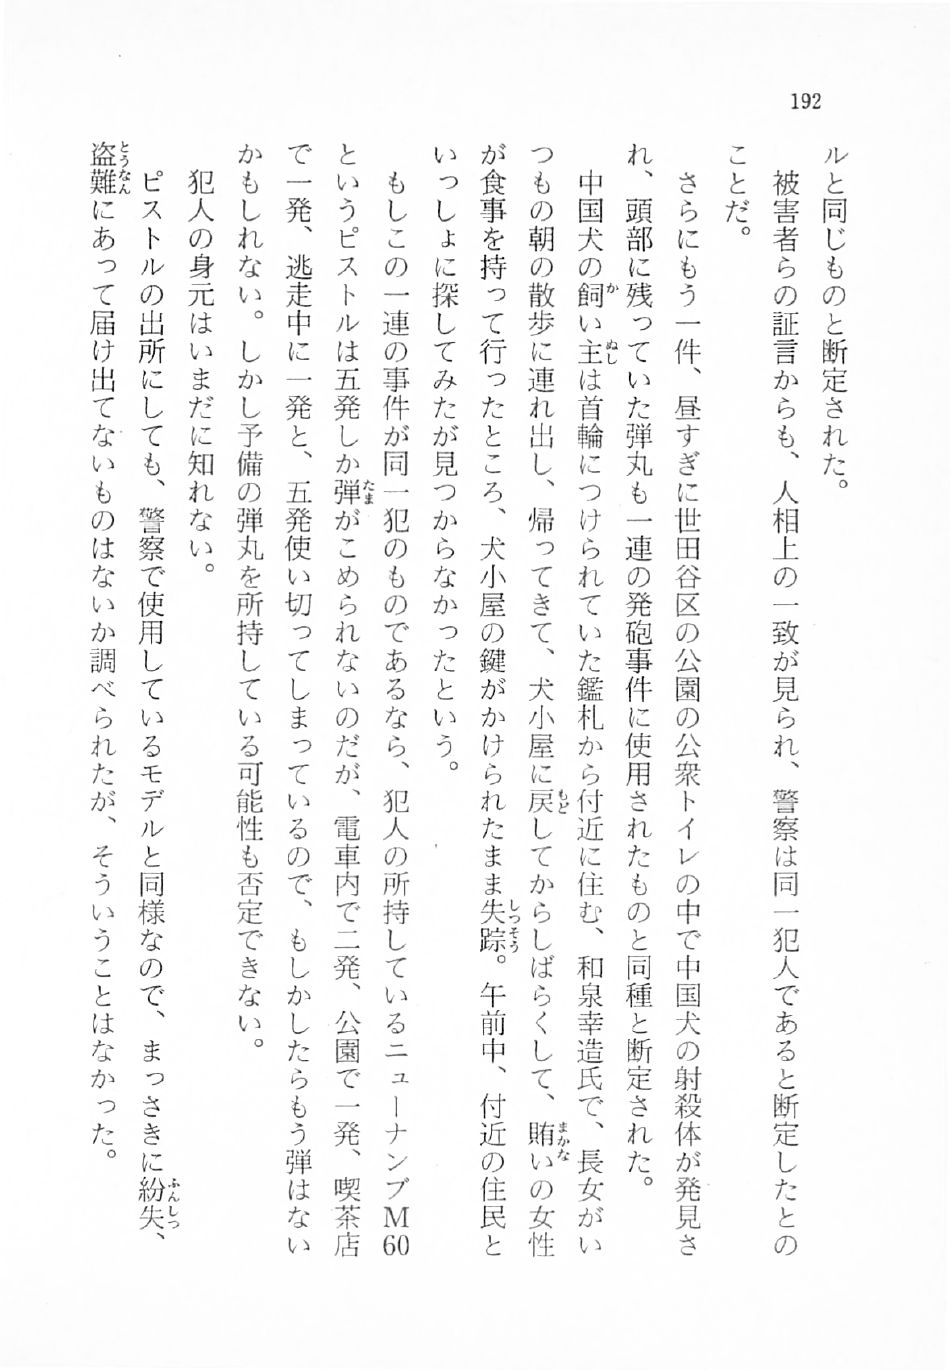 192
ルと同じものと断定された。
被害者らの証言からも、人相上の一致が見られ、警察は同一犯人であると断定したとの
ことだ。
さらにもう一件、昼すぎに世田谷区の公園の公衆トイレの中で中国犬の射殺体が発見さ
れ、頭部に残っていた弾丸も一連の発砲事件に使用されたものと同種と断定された。
中国犬の飼い主は首輪につけられていた鑑札から付近に住む、和泉幸造氏で、長女がい
つもの朝の散歩に連れ出し、帰ってきて、犬小屋に戻してからしばらくして、賄いの女性
が食事を持って行ったところ、犬小屋の鍵がかけられたまま失踪。午前中、付近の住民と
いっしょに探してみたが見つからなかったという。
もしこの一連の事件が同一犯のものであるなら、犯人の所持しているニューナンブM60
というピストルは五発しか弾がこめられないのだが、電車内で二発、公園で一発、喫茶店
で一発、逃走中に一発と、五発使い切ってしまっているので、もしかしたらもう弾はない
かもしれない。しかし予備の弾丸を所持している可能性も否定できない。
犯人の身元はいまだに知れない。
ピストルの出所にしても、警察で使用しているモデルと同様なので、まっさきに紛失、
盗難にあって届け出てないものはないか調べられたが、そういうことはなかった。